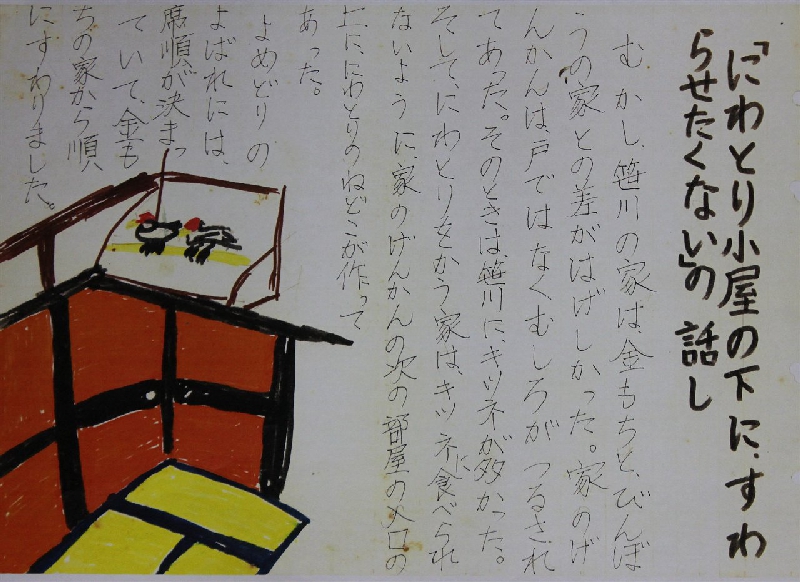 「にわとり小屋の下に、すわ
らせたくない」の話し
むかし、笹川の家は金もちと、びんぼ
うの家との差がはげしかった。家のげ
んかんは、戸ではなくむしろがつるされ
てあった。そのときは、笹川にキツネが多かった。
そして、にわとりをかう家は、キツネに食べられ
ないように、家のげんかんの次の部屋の入口の
上ににわとりのねどこが作って
あった。
よめどりの
よばれには、
席順が決まっ
ていて、金も
ちの家から順、
にすわりました。